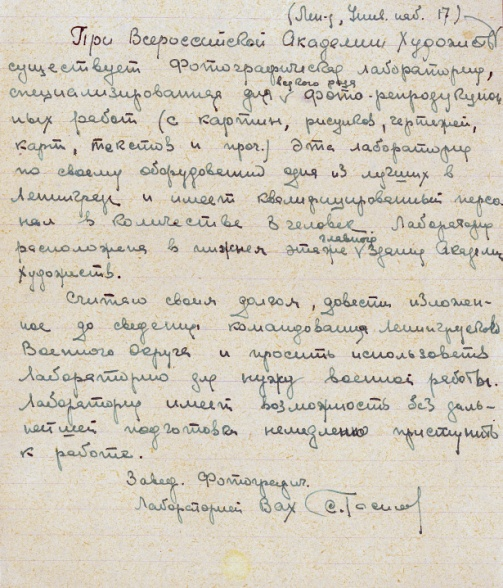 (Лен-д, Унив. наб. 17)
При Всероссийской Академии Художеств
существует Фотографическая лаборатория,
всякого рода
специализированная для фото-репродукцион-
ных работ (с картин, рисунков, чертежей,
карт, текстов и проч.) Эта лаборатория
по своему оборудованию одна из лучших в
Ленинграде и имеет квалифицированный персо-
нал в количестве 3 человек. Лаборатория
главного
расположена в нижнем этаже здания Академии
Художеств.
Считаю своим долгом, довести изложен-
ное до сведения командования Ленинградского
Военного Округа и просить использовать
Лабораторию для нужд военной работы.
Лаборатория имеет возможность без даль-
нейшей подготовки немедленно приступить
к работе.
Завед. Фотографич.
Лабораторией ВАХ